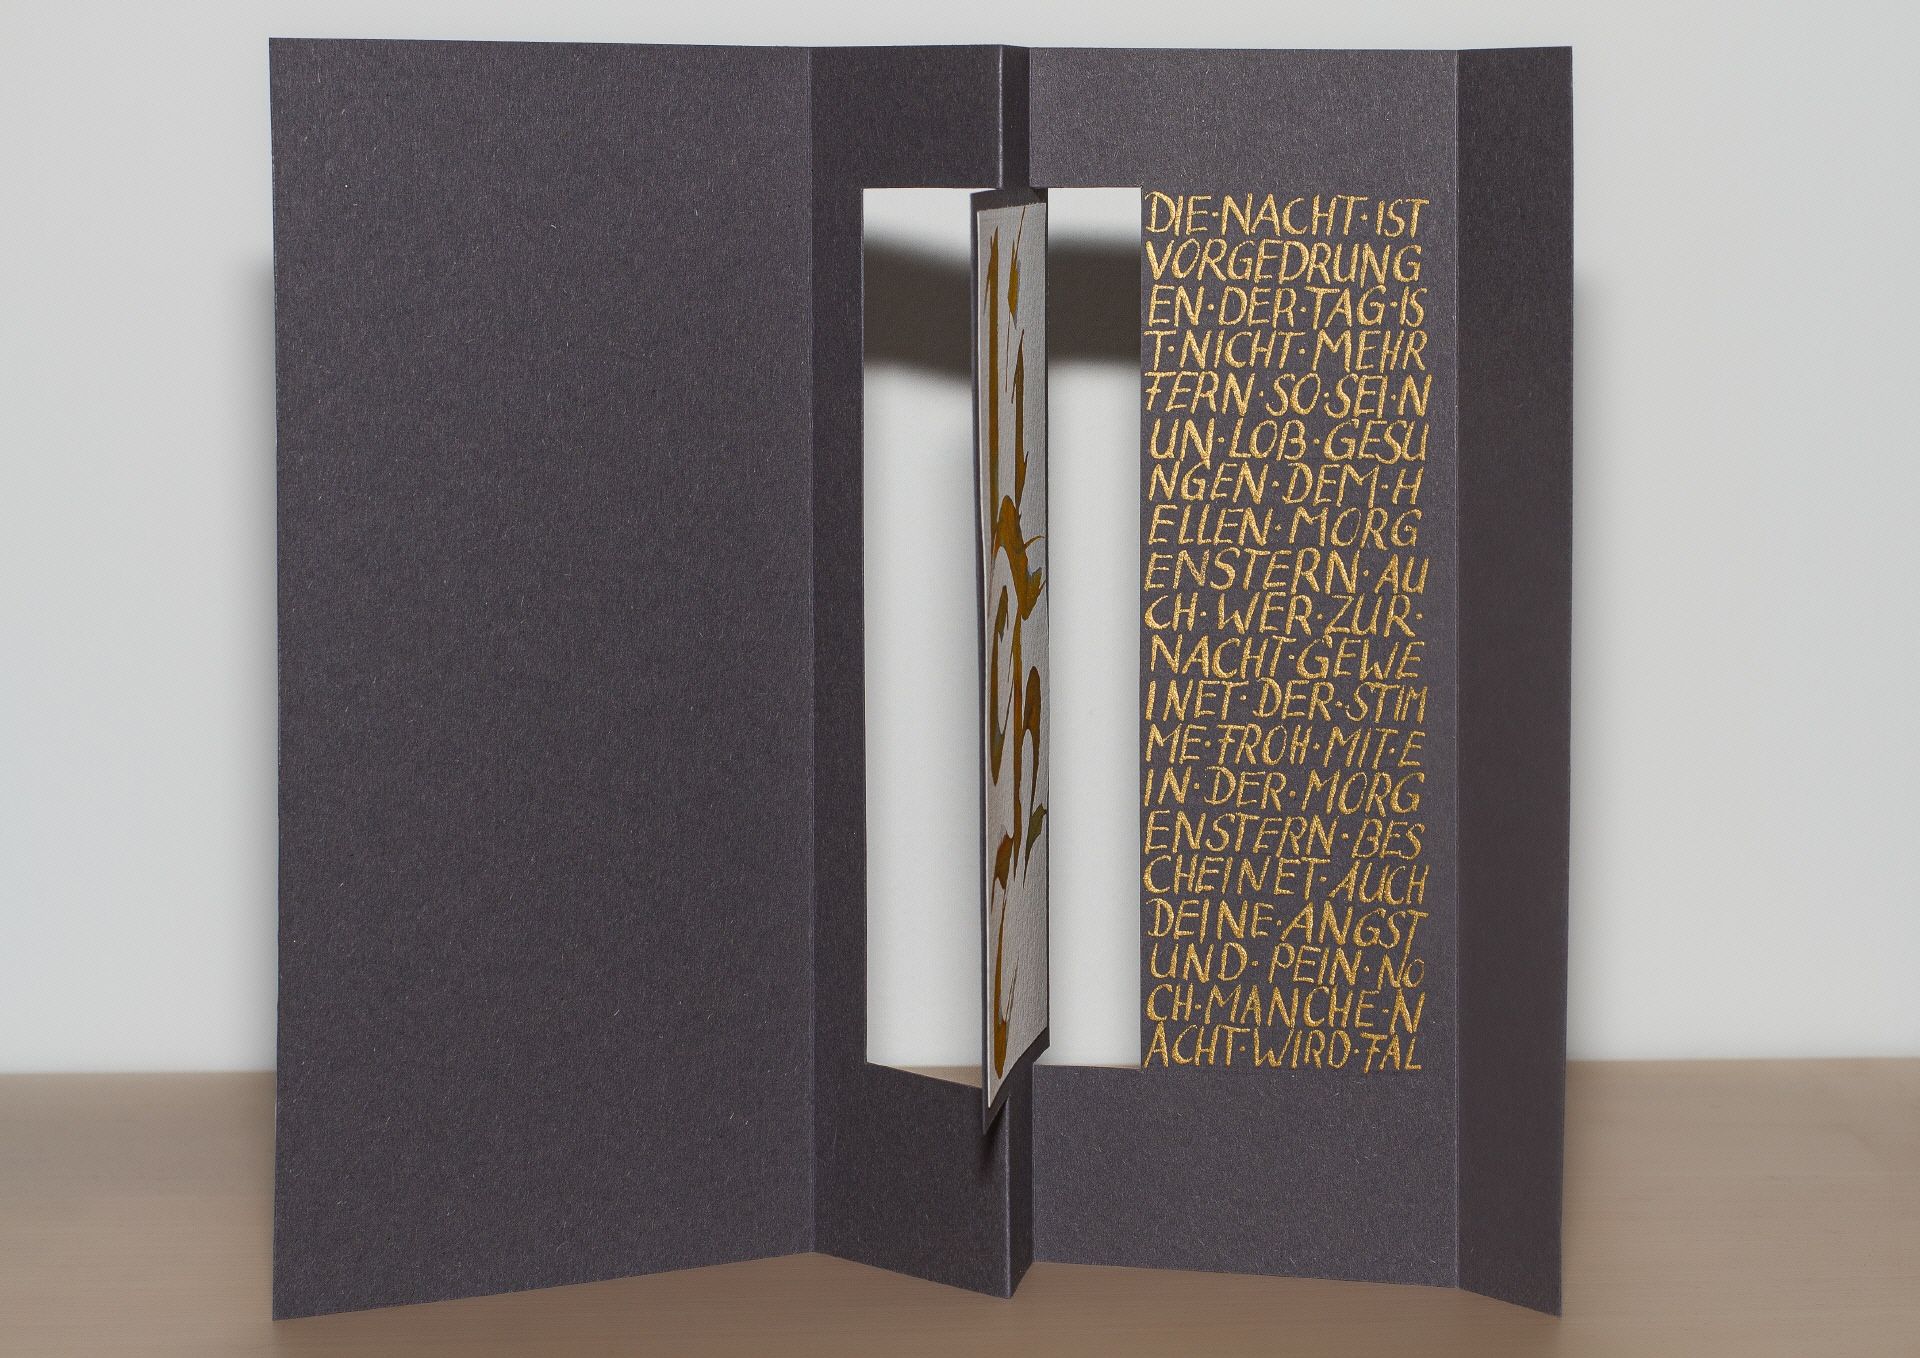 DIE·NACHT·IST
VORGEDRUNG
EN·DER·TAG·IS
T·NICHT·MEHR
FERN·SO·SEI·N
UN·LOB·GESU
NGEN·DEM·H
ELLEN·MORG
ENSTERN·AU
CH·WER·ZUR·
NACHT·GEWE
INET·DER·STIM
ME·FROH·MIT·E
IN·DER·MORG
ENSTERN·BES
CHEINET·AUCH
DEINE·ANGST
UND·PEIN·NO
CH·MANCHE·N
ACHT·WIRD·FAL